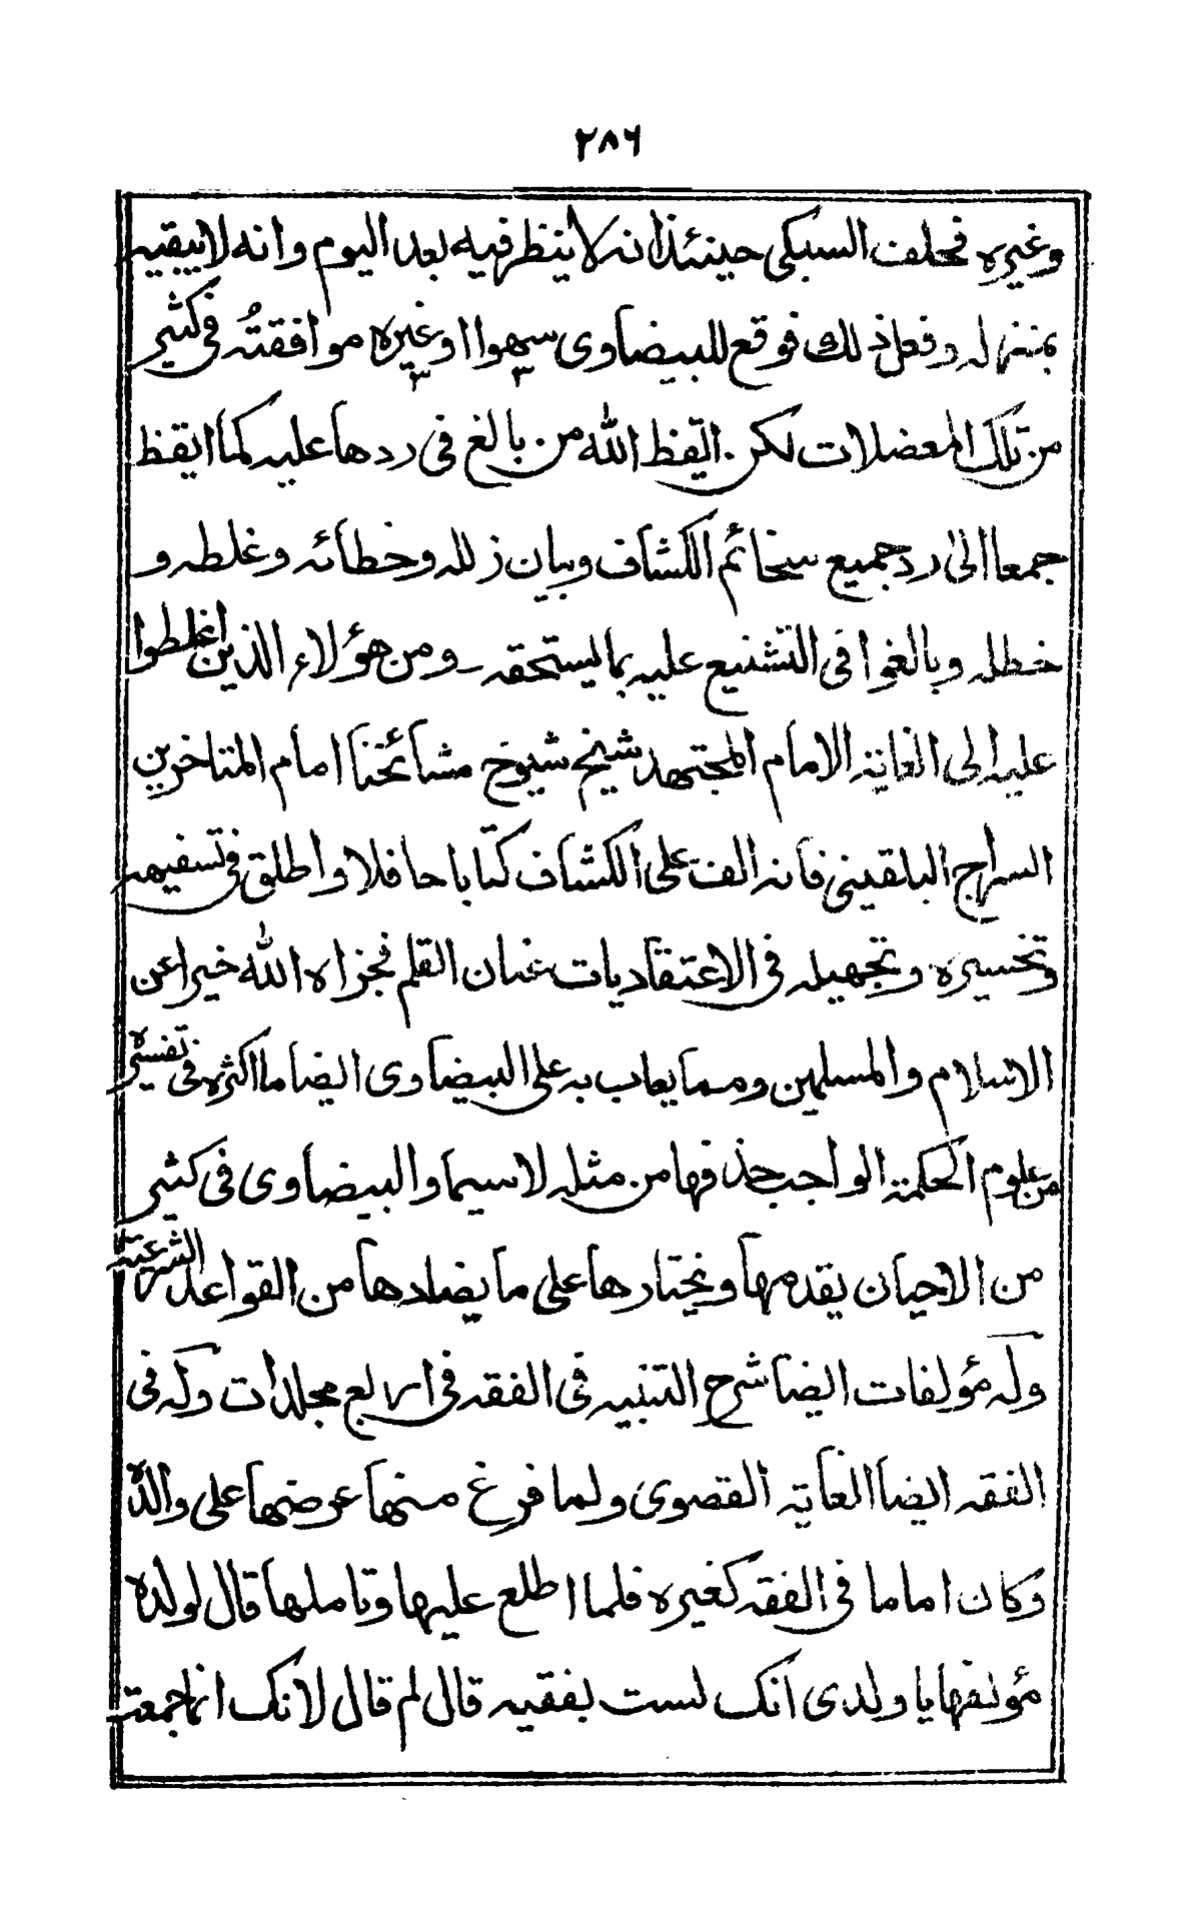 ٢٨٦
وغيره فحلف السبكي حينئذ انه لا ينظر فيه بعد اليوم وانه لا يبقيه
بمنزله وفعل ذلك فوقع للبيضاوى سهوا او غيره موافقتُه فى كثير
من تلك المعضلات لكن ايقظ الله من بالغ فى ردها عليه كما ايقظ
جمعا الى رد جميع سخائم الكشاف وبيان زلله وخطائه وغلطه و
خطله وبالغوا فى التشنيع عليه بما يستحقه ومن هؤلاء الذين اغلطوا
عليه الى الغاية الامام المجتهد شيخ شيوخ مشائخنا امام المتاخرين
السراج البلقينى فانه الف على الكشاف كتابا حافلا واطلق فى تسفيهه
وتخسيره وتجهيله فى الاعتقاديات عنان القلم فجزاه الله خيرا عن
الاسلام والمسلمين ومما يعاب به على البيضاوى ايضا ما اكثره فى تفسيره
من علوم الحكمة الواجب حذفها من مثله لاسيما والبيضاوى فى كثير
من الاحيان يقدمها ويختارها على ما يضادها من القواعد الشرعية
وله مؤلفات ايضا شرح التنبيه فى الفقه فى اربع مجلدات وله فى
الفقه ايضا الغاية القصوى ولما فرغ منها عرضها على والده
وكان اماما فى الفقه كغيره فلما اطلع عليها وتاملها قال لولده
مؤلفها يا ولدى انك لست بفقيه قال لم قال لانك انما جمعت